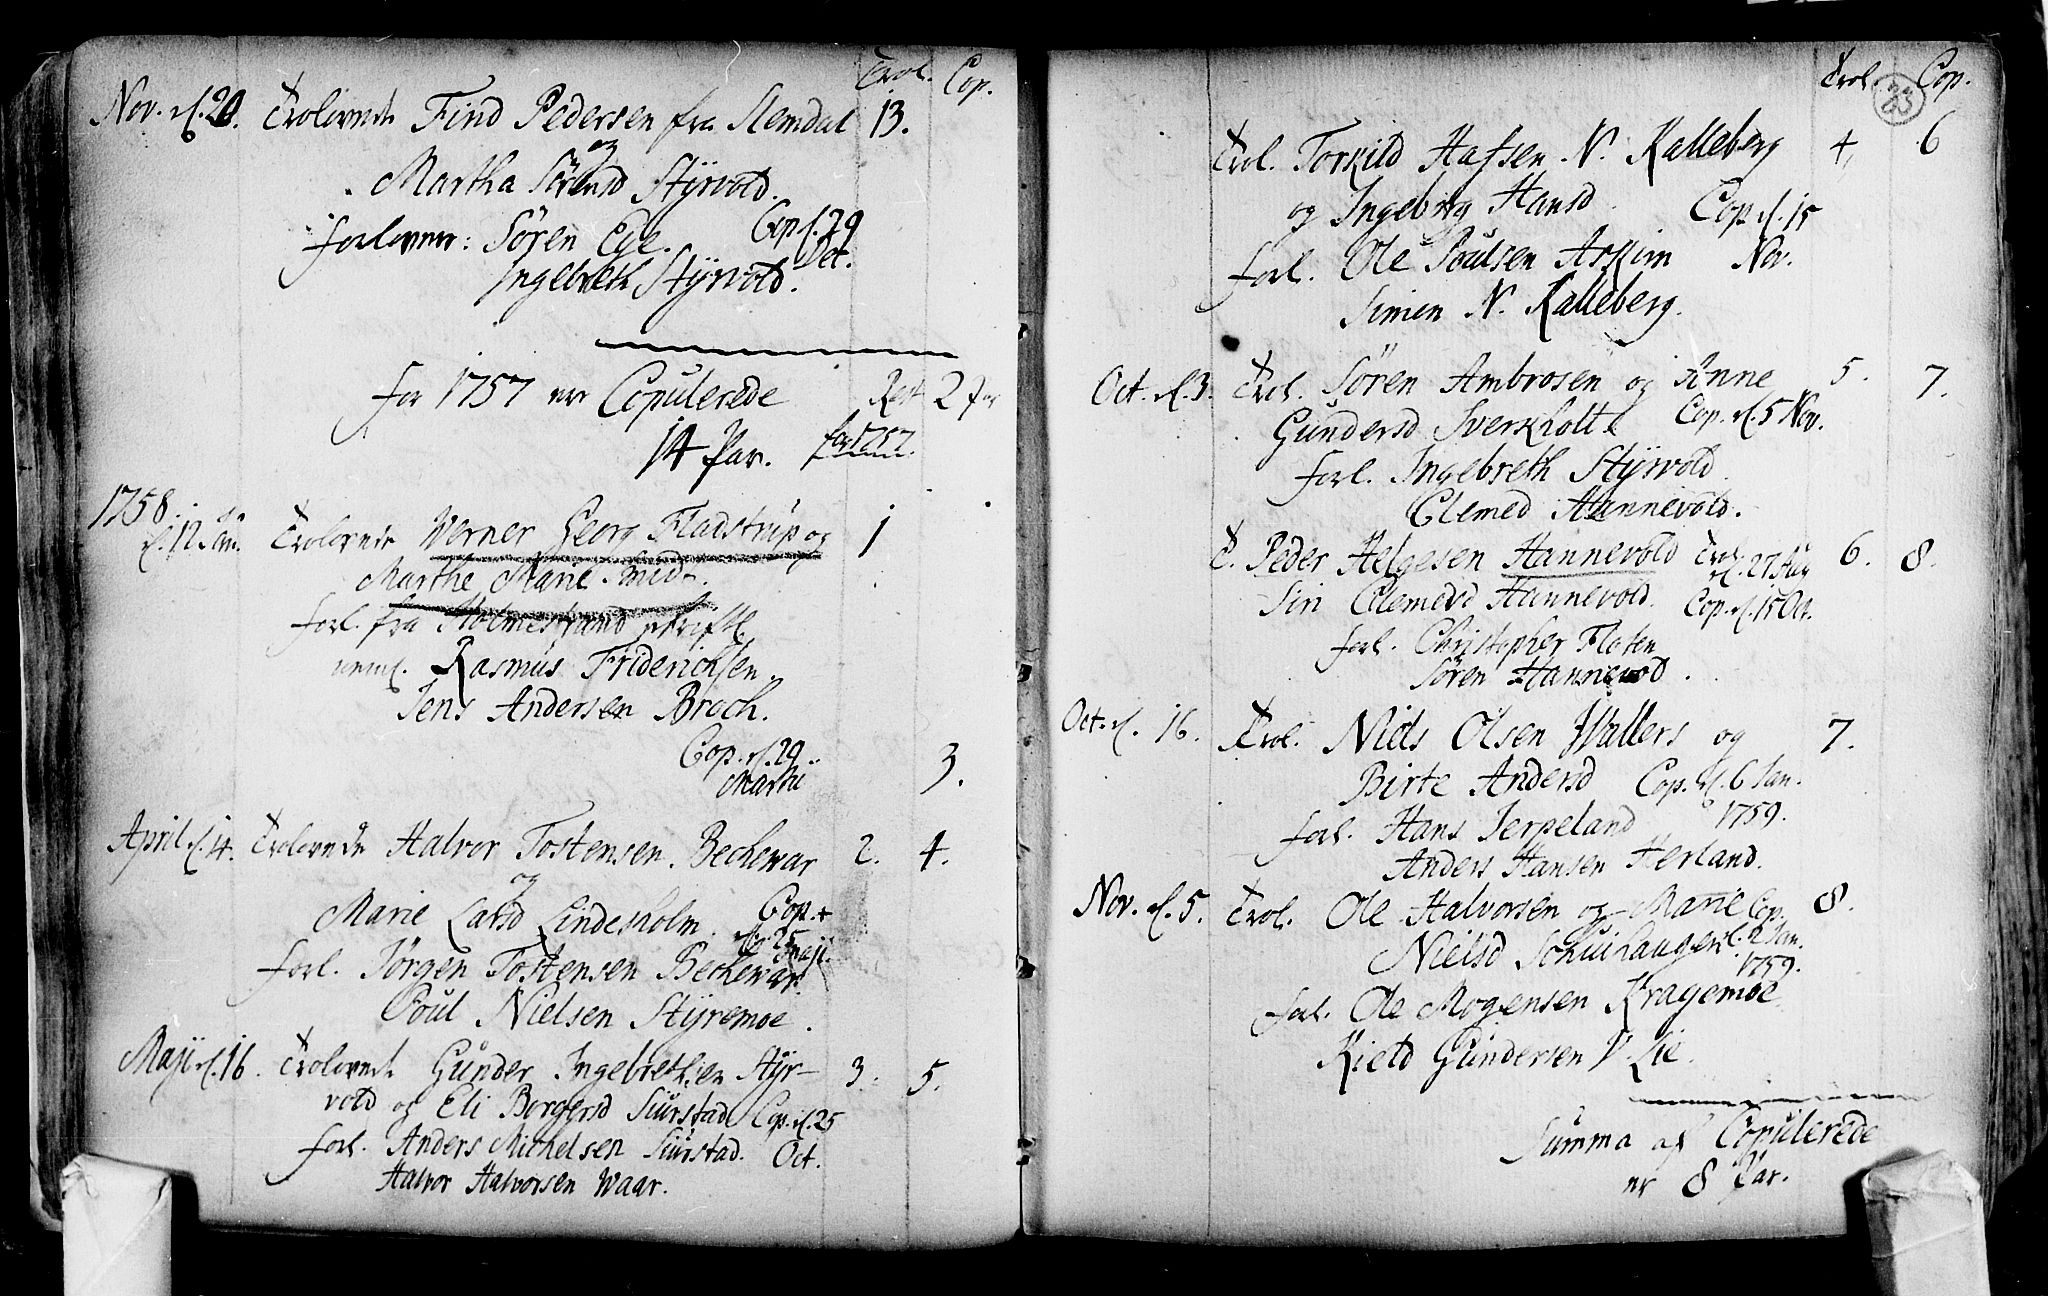 Trol. Cop.
Nov. d. 20. Trolovede Find Pedersen fra Slemdal 13.
og
Martha Sörensd Styrvold.
forlover: Sören Ege. Cop d. 29
Ingebreth Styrvold. Oct.
for 1757 er Copulerede Rest 2 par
14 Par. for 1757.
1758.
d. 12 Jan. Trolovede Werner Georg Fladstrup og 1
Marthe Marie Smidt.
forl. fra Holmestrand skriftl.
neml. Rasmus Friderichsen.
Jens Andersen Broch.
Cop. d. 29.
Martii 3.
April d. 14. Trolovede Halvor Tostensen Bechewar 2. 4.
og
Marie Larsd Lindesholm. Cop.
d. 25 Maji.
forl. Jörgen Tostensen Bechewar
Poul Nielsen Styremoe.
Maji d. 16. Trolovede Gunder Ingebrethsen Styr- 3. 5.
vold og Eli Borgersd Siurstad Cop. d. 25
forl. Anders Michelsen Siurstad. Oct.
Halvor Halvorsen Waar.
Trol. Cop.
83
Trol. Torkild Hafsen N. Kalleberg 4, 6
og Ingeborg Hansd. Cop d. 15
forl. Ole Poulsen Askim Nov.
Simen N. Kalleberg.
Oct. d. 3. Trol. Sören Ambrosen og Anne 5. 7.
Gundersd Sverkholt Cop. d. 5 Nov.
forl. Ingebreth Styrvold
Clemed Hannevold.
T. Peder Helgesen Hannevold Trol. d. 27 Aug 6. 8.
Siri Clemedsd Hannevold. Cop. d. 15 Oct.
forl. Christopher Floten
Sören Hannevod.
Oct. d. 16. Trol. Niels Olsen Wallers og 7.
Birte Andersd Cop. d. 6 Jan.
forl. Hans Jerpeland 1759.
Anders Hansen Herland.
Nov. d. 5. Trol. Ole Halvorsen og Marie Cop. 8.
Nielsd Schuihaugen d. 2 Jan.
1759.
forl. Ole Mogensen Kragemoe
Kield Gundersen V. Lie.
Summa af Copulerede
er 8 Par.